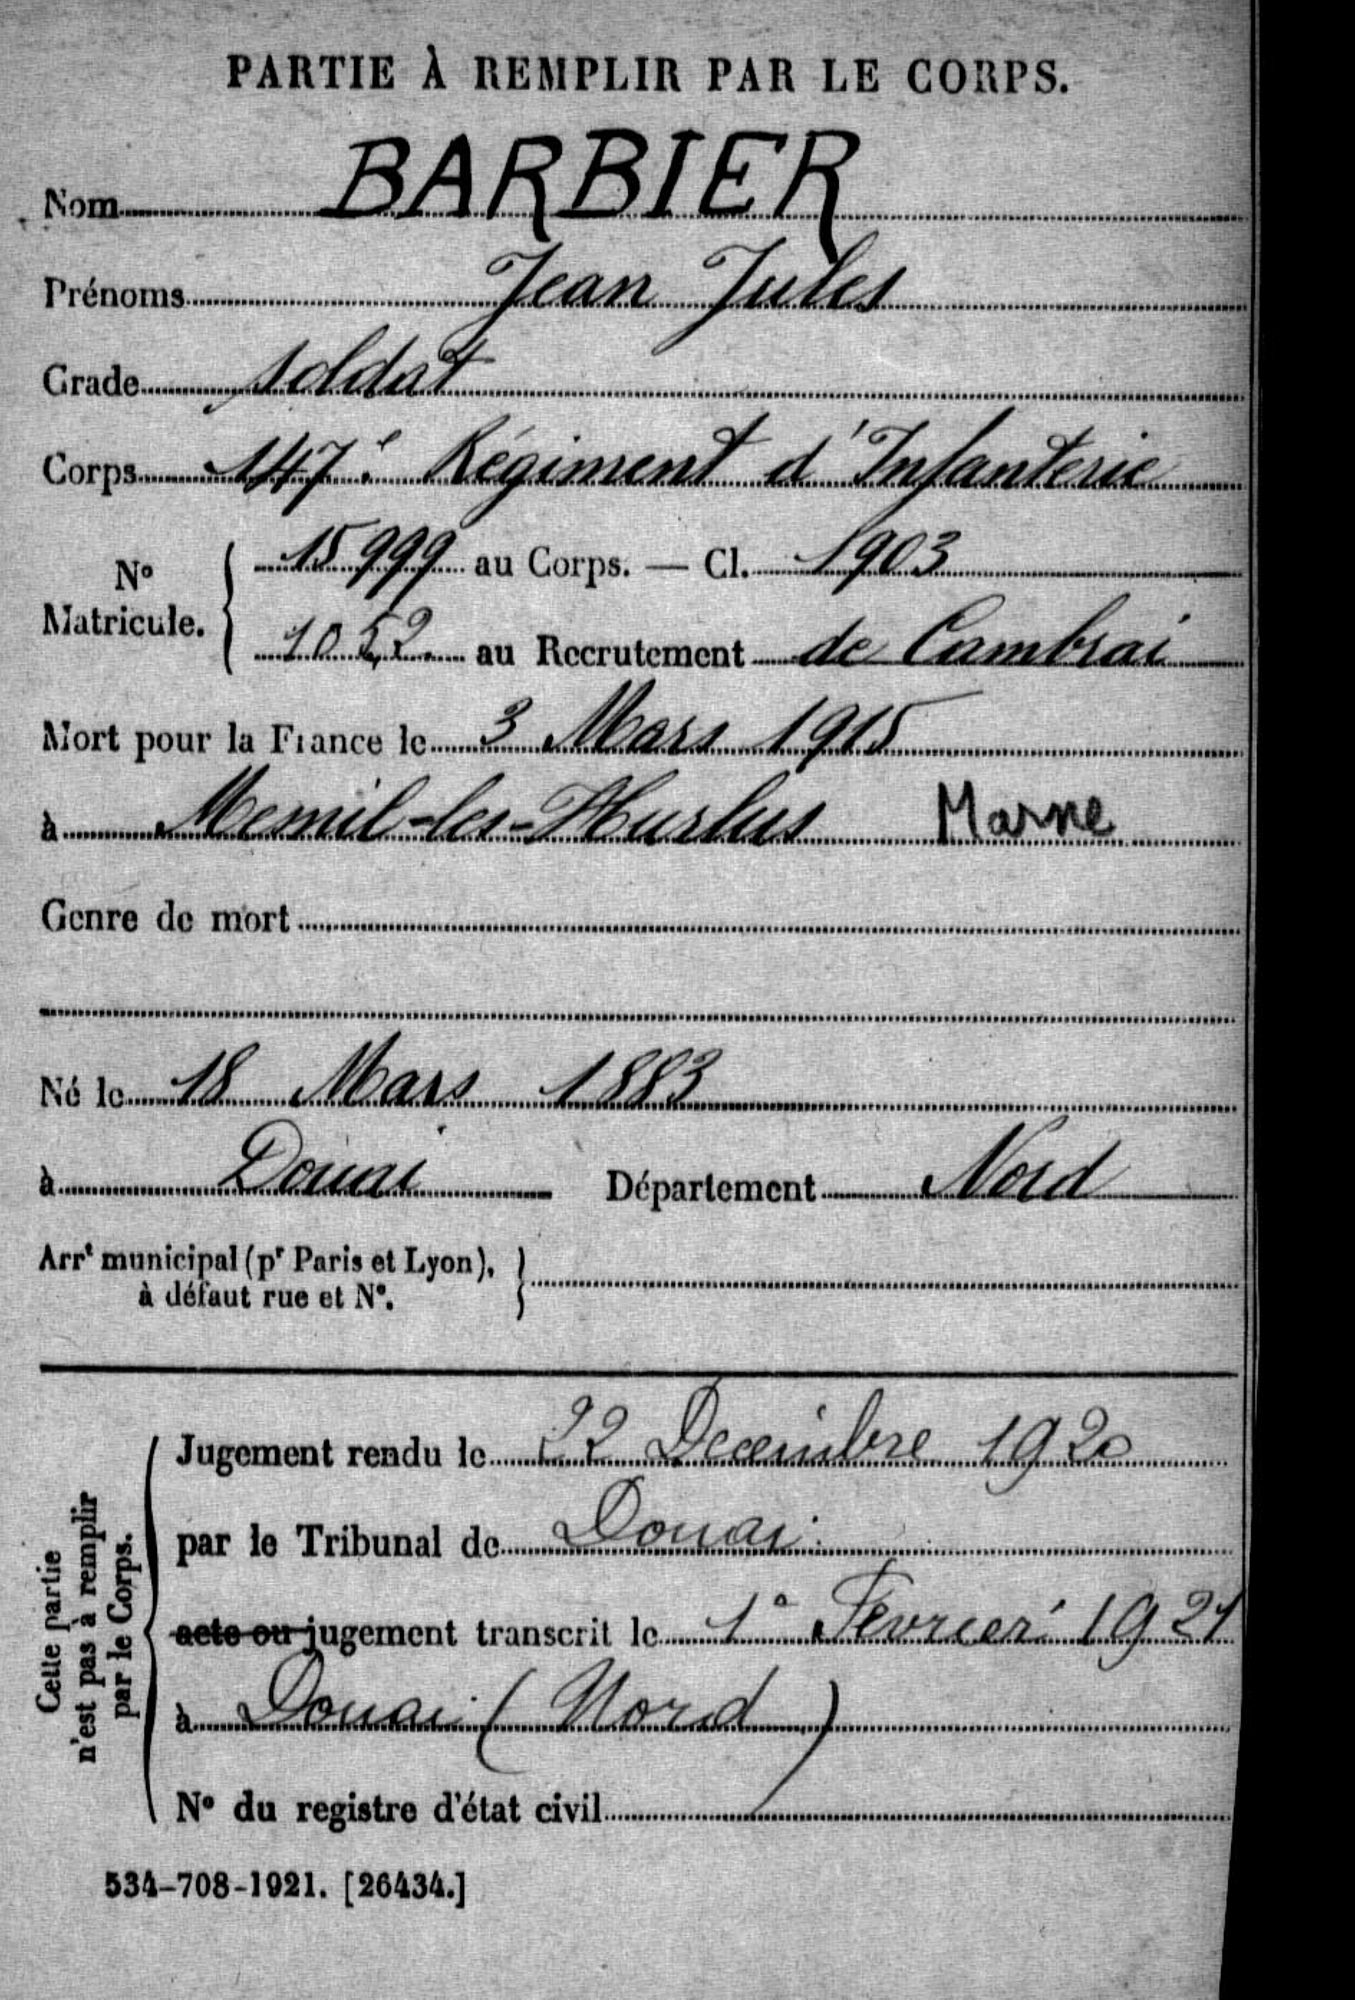 PARTIE À REMPLIR PAR LE CORPS.
Nom BARBIER
Prénoms Jean Jules
Grade soldat
Corps 147e Régiment d'Infanterie
N° Matricule. { 15999 au Corps. — Cl. 1903
1052 au Recrutement de Cambrai
Mort pour la France le 3 Mars 1915
à Mesnil-les-Hurlus Marne
Genre de mort
Né le 18 Mars 1883
à Douai Département Nord
Arrt municipal (pr Paris et Lyon), }
à défaut rue et N°.
Cette partie
n'est pas à remplir
par le Corps.
Jugement rendu le 22 Decembre 1920
par le Tribunal de Douai
acte ou jugement transcrit le 1° Fevrier 1921
à Douai (Nord)
N° du registre d'état civil
534-708-1921. [26434.]